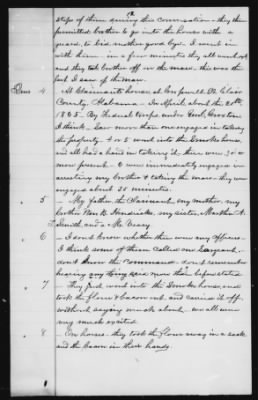 steps of them during this conversation - they then
permitted brother to go into the house with a
guard, to bid mother good bye. I went in
with him - in a few minutes they all went out
and they took brother off on the mare. this was the
last I saw of the mare.
4 - At Claimant's house at Cropwell St. Clair
County, Alabama - In April about the 20th
1865. By Federal troops under Genl. Croxton
I think. Saw more than one engaged in taking
the property. 4 or 5 went into the Smoke house,
and all had a hand in taking it. there were 20 or
more present. 6 were immediately engaged in
arresting my brother & taking the mare - they were
engaged about 25 minutes.
5 - My father the Claimant, my mother, my
brother Hendricks, my sister, Martha A.
Smith and a Mr.
6 - I dont know whether there were any Officers -
I think some of them called one Sergeant -
dont know the Command - dont remember
hearing any thing said more than before stated
7 - They first went into the Smoke house, and
took the flour & bacon out and carried it off,
without saying much about - we all were
very much excited
8 - On horses. they took the flour away in a sack
and the bacon in their hands.